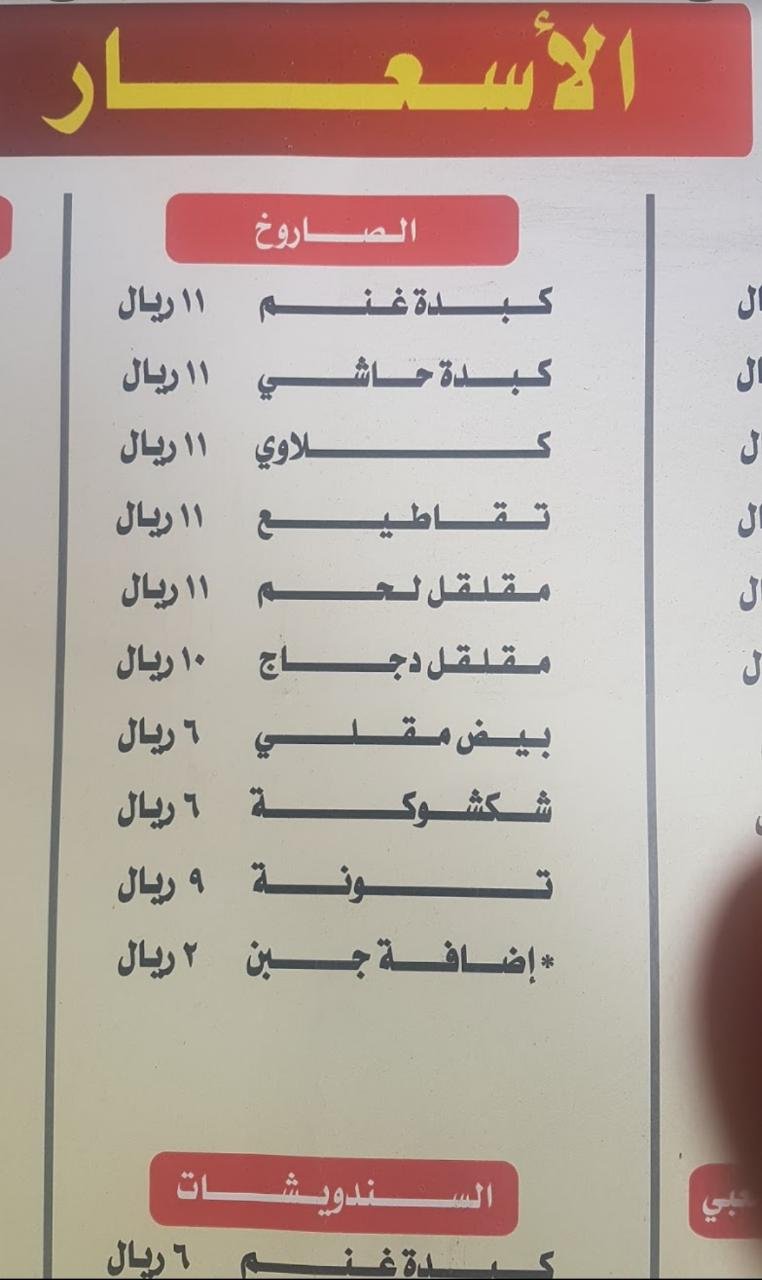 الأسعار
الصاروخ
كبدة غنم ١١ ريال
كبدة حاشي ١١ ريال
كلاوي ١١ ريال
تقاطيع ١١ ريال
مقلقل لحم ١١ ريال
مقلقل دجاج ١٠ ريال
بيض مقلي ٦ ريال
شكشوكة ٦ ريال
تونة ٩ ريال
*إضافة جبن ٢ ريال
السندويشات
كبدة غنم ٦ ريال